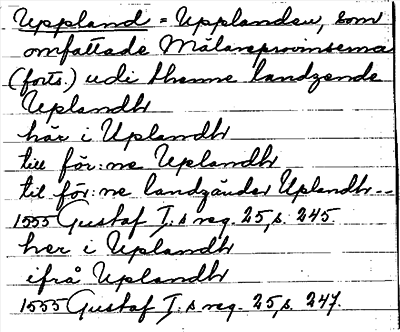 Uppland = Upplanden, som
omfattade Mälareprovinserna
(forts.) udi thenne landzende
Uplandh
här i Uplandh
till för:ne Uplandh
til för:ne landzänder Uplandh--
1555 Gustaf I.s reg. 25, s. 245.
her i Uplandh
ifrå Uplandh
1555 Gustaf I.s reg. 25, s. 247.